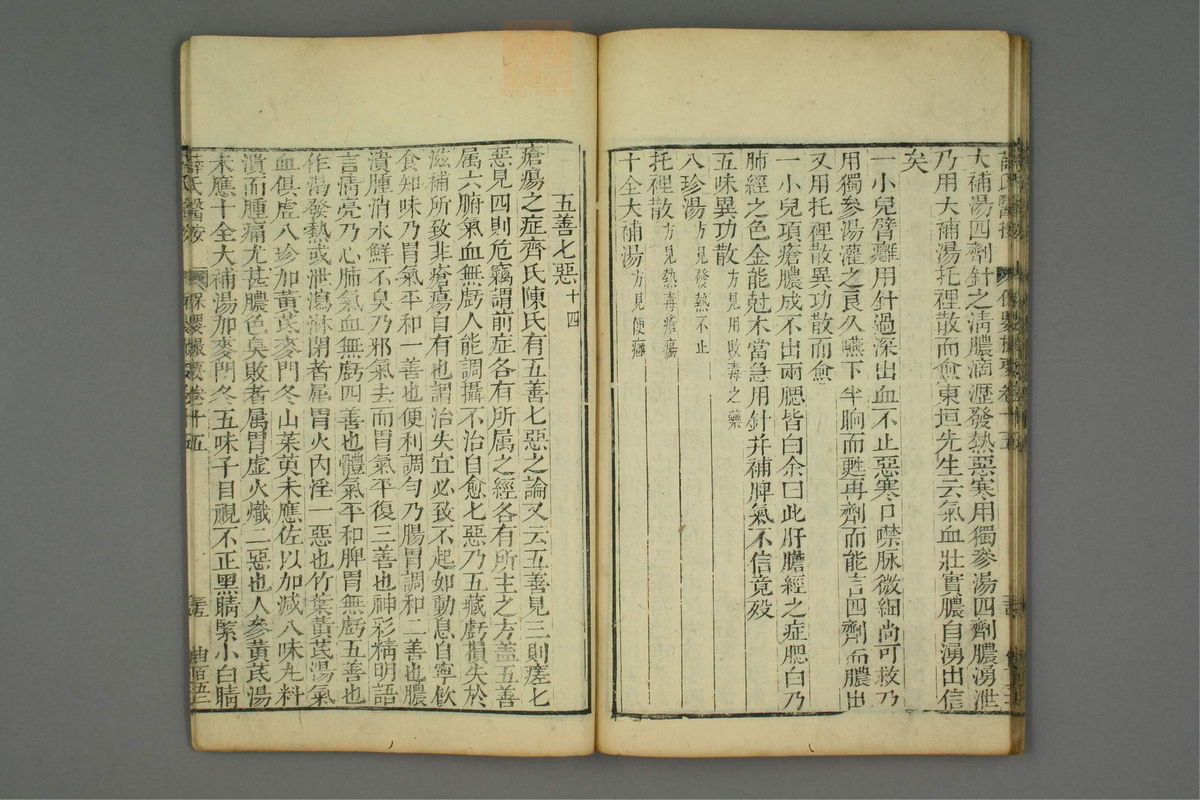 大補湯四劑針之清膿滴瀝發熱惡寒用獨參湯四劑膿湧泄
乃用大補湯托裡散而愈東垣先生云氣血壯實膿自湧出信
矣
一小兒臂癰用針過深出血不止惡寒口噤脉微細尚可救乃
用獨參湯灌之良久嚥下半晌而甦再劑而能言四劑而膿出
又用托裡散異功散而愈
一小兒項瘡膿成不出兩腮皆白余曰此肝膽經之症腮白乃
肺經之色金能尅木當急用針并補脾氣不信竟歿
五味異功散方見用敗毒之藥
八珍湯方見發熱不止
托裡散方見熱毒瘡瘍
十全大補湯方見便癰
五善七惡十四
瘡瘍之症齊氏陳氏有五善七惡之論又云五善見三則瘥七
惡見四則危竊謂前症各有所属之經各有所主之方盖五善
属六腑氣血無虧人能調攝不治自愈七惡乃五藏虧損失於
滋補所致非瘡瘍自有也謂治失宜必致不起如動息自寧飲
食知味乃胃氣平和一善也便利調勻乃腸胃調和二善也膿
潰腫消水鮮不臭乃邪氣去而胃氣平復三善也神彩精明語
言清亮乃心肺氣血無虧四善也體氣平和脾胃無虧五善也
作渴發熱或泄瀉淋閉者属胃火內淫一惡也竹葉黃芪湯氣
血俱虛八珍加黃芪麥門冬山茱萸未應佐以加減八味丸料
潰而腫痛尤甚膿色臭敗者属胃虛火熾二惡也人參黃芪湯
未應十全大補湯加麥門冬五味子目視不正黑睛緊小白睛
薛氏醫按
保嬰撮要卷十五